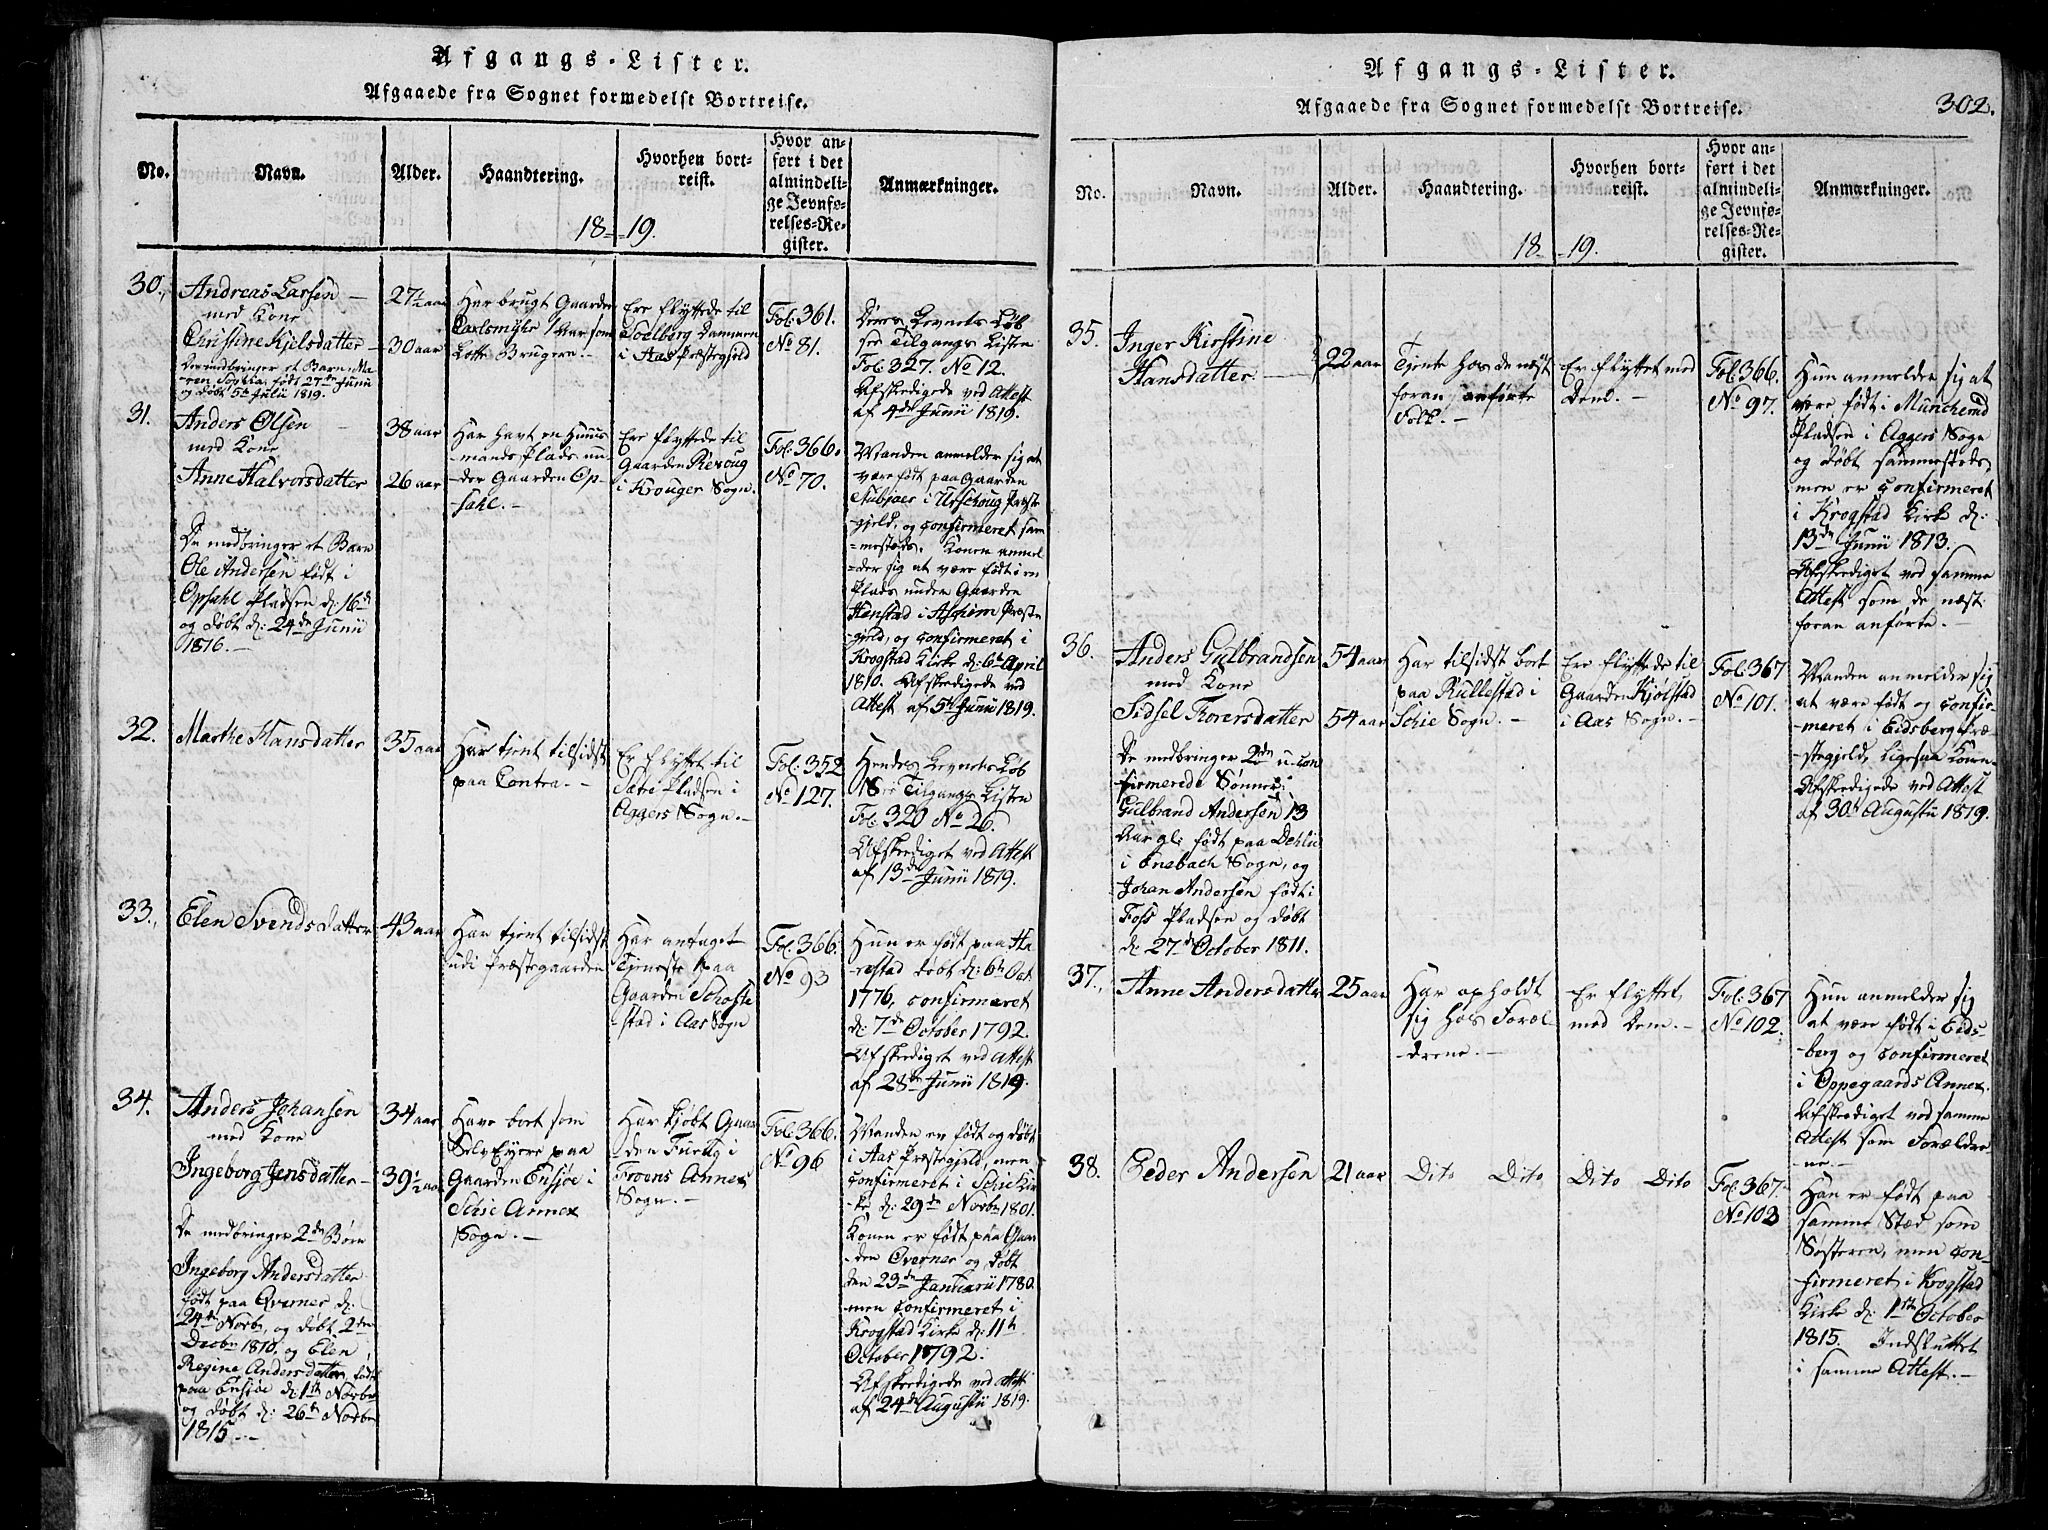 Afgangs-Lister.
Afgaaede fra Sognet formedelst Bortreise.
No.
Navn.
Alder.
Haandtering.
Hvorhen bort-
reist.
Hvor an-
ført i det
almindeli-
ge Jevnfø-
relses-Re-
gister.
Anmærkninger.
18-19.
30.
Andreas Larsen
med Kone
Christine Kjelsdatter
De medbringer et Barn, Ma-
ren Sophia, født 27de Junii
og døbt 5th Julii 1819.
27½ aar
30 aar
Har brugt Gaarden
Carlsmyhr / Var som
Lotte Brugere.-
Ere flyttede til
Soelberg Dammen
i Aas Præstegjeld
Fol: 361.
No 81.
Deres Levnets Løb
see Tilgangs Listen
Fol: 327. No 12.
Afskedigede ved Attest
af 4de Junii 1819.
31.
Anders Olsen
med Kone
Anne Halvorsdatter
De medbringer et Barn
Ole Andersen født i
Opsahl Pladsen d: 16de
og døbt d: 24de Junii
1816.-
38 aar
26 aar
Har havt en Huus
mands Plads un-
der Gaarden Op-
sahl.-
Ere flyttede til
Gaarden
i Krouger Sogn.-
Fol: 366.
No 70.
Manden anmelder sig at
være født paa Gaarden
i Urschoug Præste
gjeld, og confirmeret sam
mesteds. Konen anmel
der sig at være født i en
Plads under Gaarden
Henstad i Aschim Præste
gjeld, og confirmeret i
Krogstad Kirke d: 6te April
1810. Afskedigede ved
Attest af 5th Junii 1819.
32.
Marthe Hansdatter
35 aar
Har tjent tilsidst
paa Contra.-
Er flyttet til
Sætre Pladsen i
Aggers Sogn.-
Fol: 352
No 127.
Hendes Levnets Løb
See Tilgangs Listen
Fol: 320 No 26.
Afskediget ved Attest
af 13de Junii 1819.
33.
Elen Svendsdatter
43 aar
Har tjent tilsidst
udi Præstegaarden
Har antaget
Tjeneste paa
Gaarden Schosse
stad i Aas Sogn
Fol: 366.
No 93
Hun er født paa Ha-
restad døbt d: 6th Oct
1776, confirmeret
d: 7de October 1792.
Afskediget ved Attest
af 28de Junii 1819.
34.
Anders Johansen
med Kone
Ingeborg Jensdatter
De medbringer 2de Børn
Ingeborg Andersdatter
født paa Qverner d:
24de Novbr, og døbt 2den
Decbr 1810, og Elen
Regine Andersdatter, født
paa Ensjøe d: 1th Novbr
og døbt d: 26th Novbr
1815.-
34 aar
39½ aar
Have bort som
Selv Eyere paa
Gaarden Ensjøe i
Schie Annex
Sogn.-
Har kjøbt Gaar
den Furug i
Froens Annex
Sogn.-
Fol: 366.
No 96
Manden er født og døbt
i Aas Præstegjeld, men
confirmeret i Schie Kir
ke d: 29de Novbr 1801.
Konen er født paa Gaar
den Qverner og døbt
den 23de Januarii 1780.
men confirmeret i
Krogstad Kirke d: 11th
October 1792.
Afskedigede ved Attest
af 24de Augustii 1819.
Afgangs-Lister.
Afgaaede fra Sognet formedelst Bortreise.
302.
No.
Navn.
Alder.
Haandtering.
Hvorhen bort-
reist.
Hvor an-
ført i det
almindeli-
ge Jevnfø-
relses-Re-
gister.
Anmærkninger.
18-19.
35.
Inger Kirstine
Hansdatter
22 aar
Tjente hos de næst
foran anførte
Folk.-
Er flyttet med
Dem.-
Fol: 366.
No 97.
Hun anmelder sig at
være født i Muncherud
Pladsen i Aggers Sogn
og døbt sammesteds
men er confirmeret
i Krogstad Kirke d:
13de Junii 1813.
Afskediget ved samme
Attest som de næst
foran anførte.-
36.
Anders Gulbrandsen
med Kone
Sidsel Thorersdatter
De medbringer 2de u-con
firmerede Sønner:
Gulbrand Andersen 13
Aar gl: født paa Dehlie
i Enebach Sogn, og
Johan Andersen født i
Foss Pladsen og døbt
d: 27de October 1811.
54 aar
54 aar
Har tilsidst bort
paa Rullestad i
Schie Sogn.-
Ere flyttede til
Gaarden Kjølstad
i Aas Sogn.-
Fol: 367
No 101.
Manden anmelder sig
at være født og confir-
meret i Eidsberg Præ-
stegjeld, ligesaa Konen.
Afskedigede ved Attest
af 30te Augustii 1819.
37.
Anne Andersdatter
25 aar
Har opholdt
sig hos Foræl
drene.-
Er flyttet
med Dem.-
Fol: 367
No 102.
Hun anmelder sig
at være født i Eids-
berg og confirmeret
i Oppegaards Annex.
Afskediget ved samme
Attest som Forældre
ne.-
38.
Peder Andersen
21 aar
Dito Dito
Dito Dito
Fol: 367.
No 103
Han er født paa
samme Stæd som
Søsteren, men con-
firmeret i Krogstad
Kirke d: 1ste October
1815. Indsluttet
i samme Attest.-